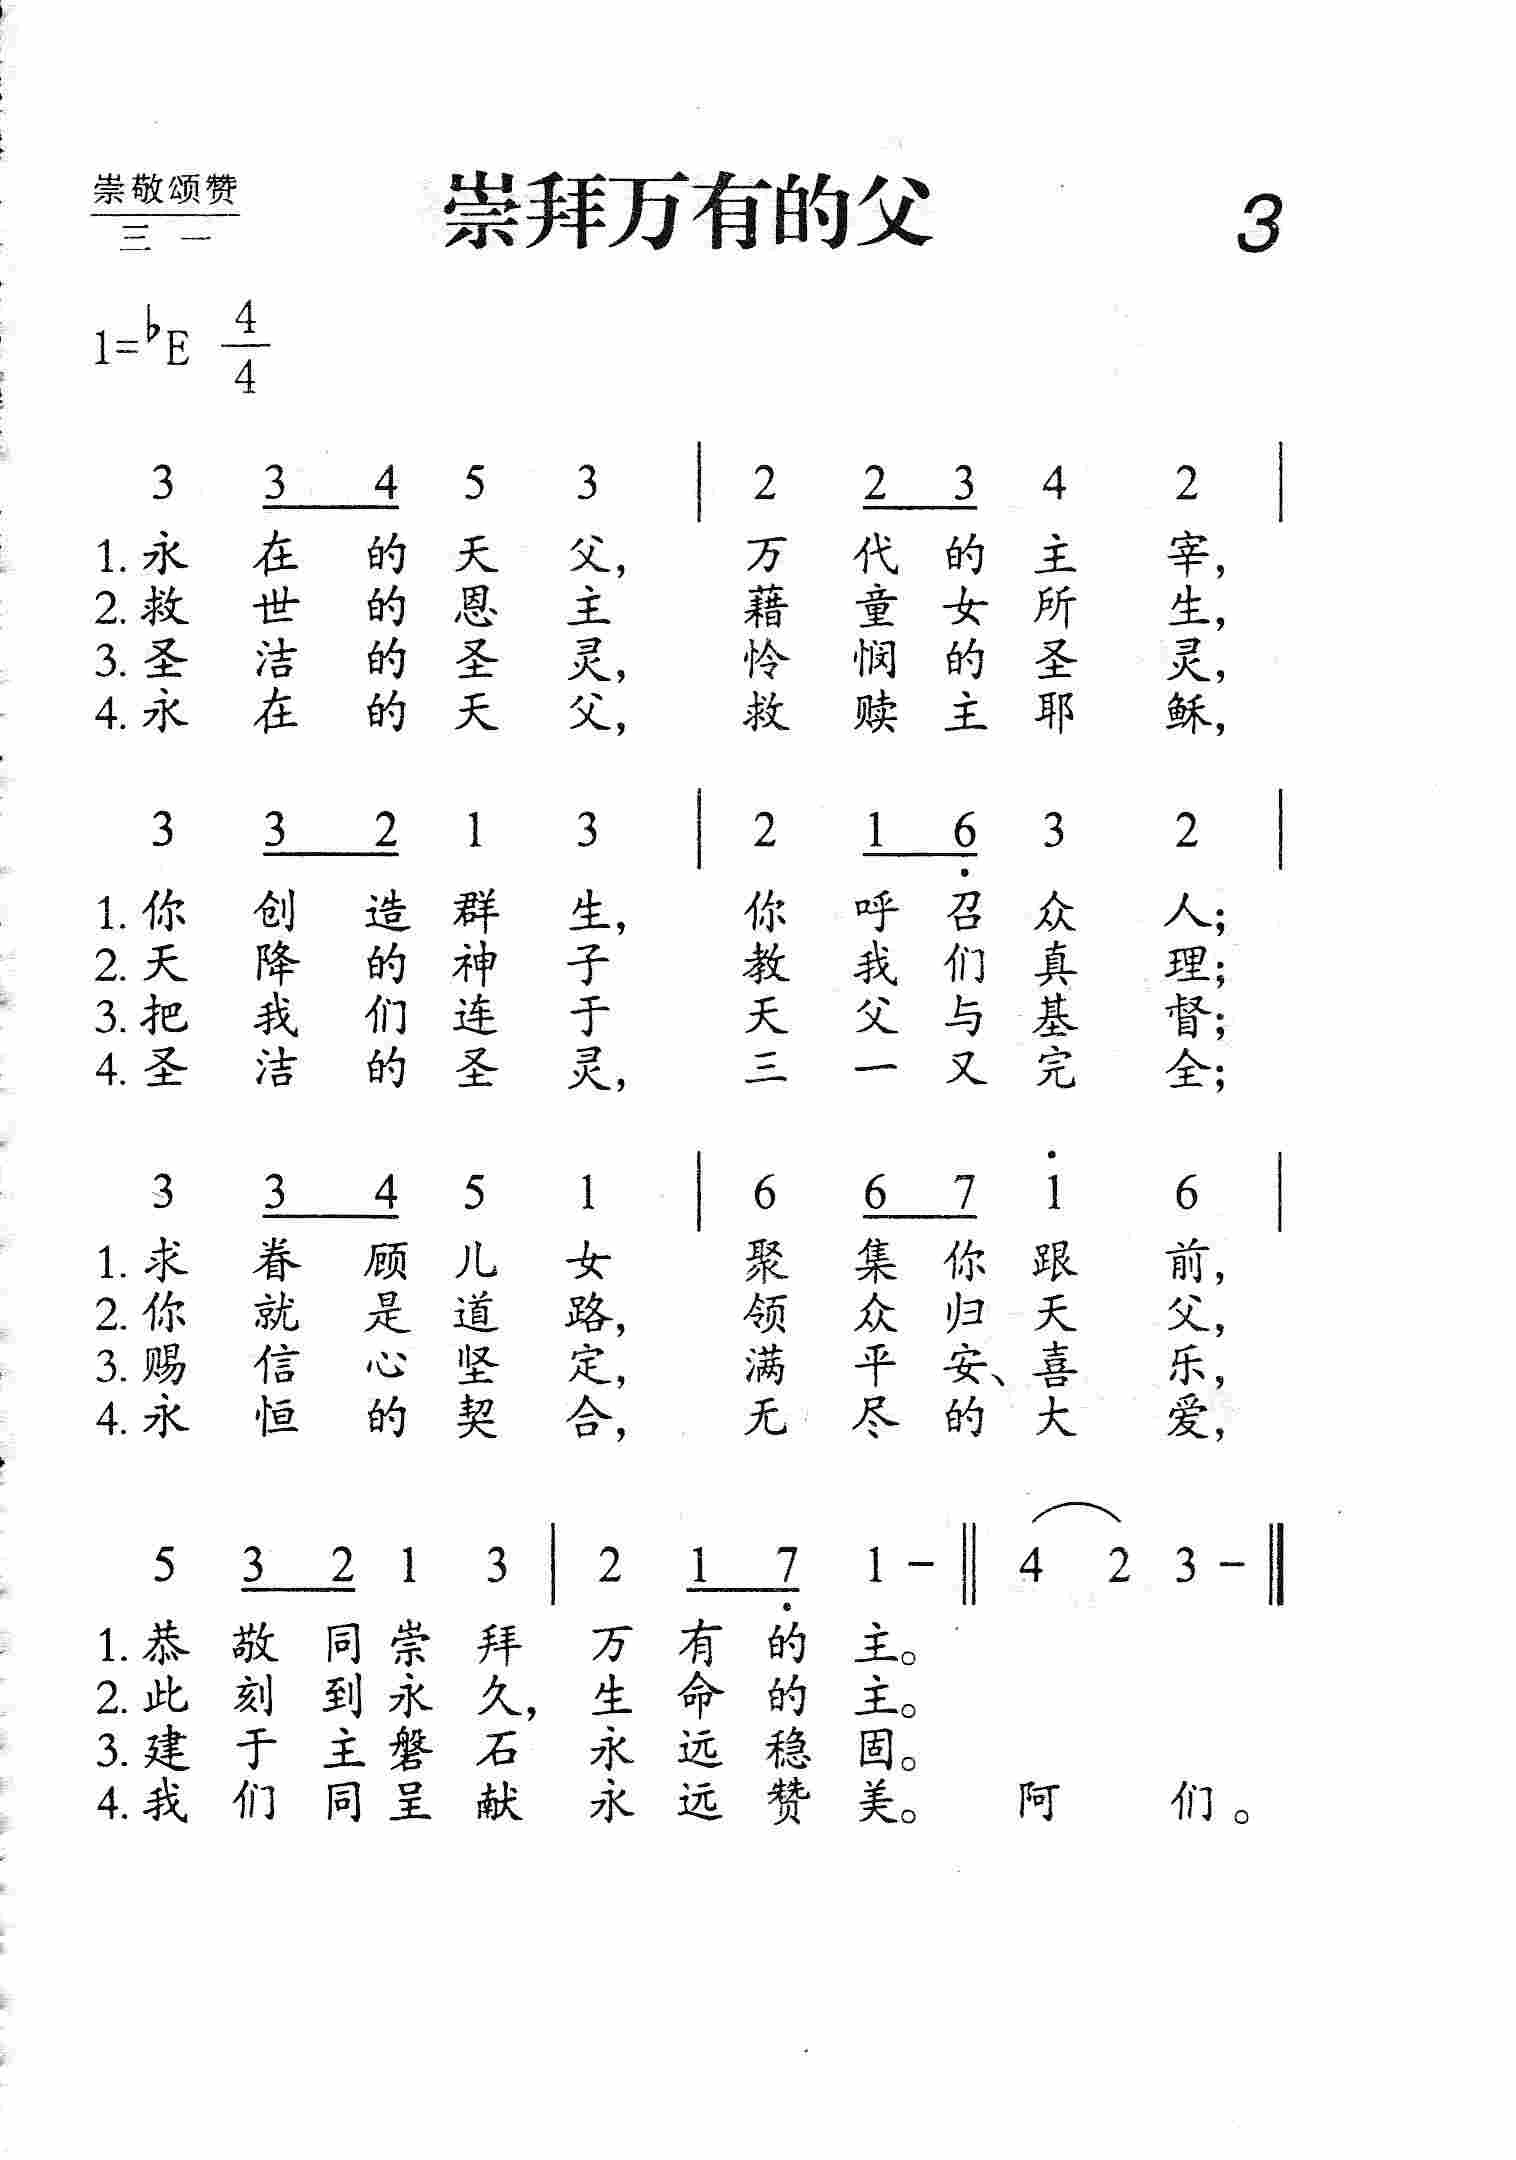 崇敬颂赞
三一
崇拜万有的父
3
1=♭E 4/4
3 3 4 5 3 | 2 2 3 4 2 |
1. 永在的天父, 万代的主宰,
2. 救世的恩主 藉童女所生,
3. 圣洁的圣灵, 怜悯的圣灵,
4. 永在的天父, 救赎主耶稣,
3 3 2 1 3 | 2 1 6̣ 3 2 |
1. 你创造群生, 你呼召众人;
2. 天降的神子 教我们真理;
3. 把我们连于 天父与基督;
4. 圣洁的圣灵, 三一又完全;
3 3 4 5 1 | 6 6 7 1̇ 6 |
1. 求眷顾儿女 聚集你跟前,
2. 你就是道路, 领众归天父,
3. 赐信心坚定, 满平安、喜乐,
4. 永恒的契合, 无尽的大爱,
5 3 2 1 3 | 2 1 7̣ 1 – ‖ 4 2 3 – ‖
1. 恭敬同崇拜 万有的主。
2. 此刻到永久, 生命的主。
3. 建于主磐石 永远稳固。
4. 我们同呈献 永远赞美。 阿们。